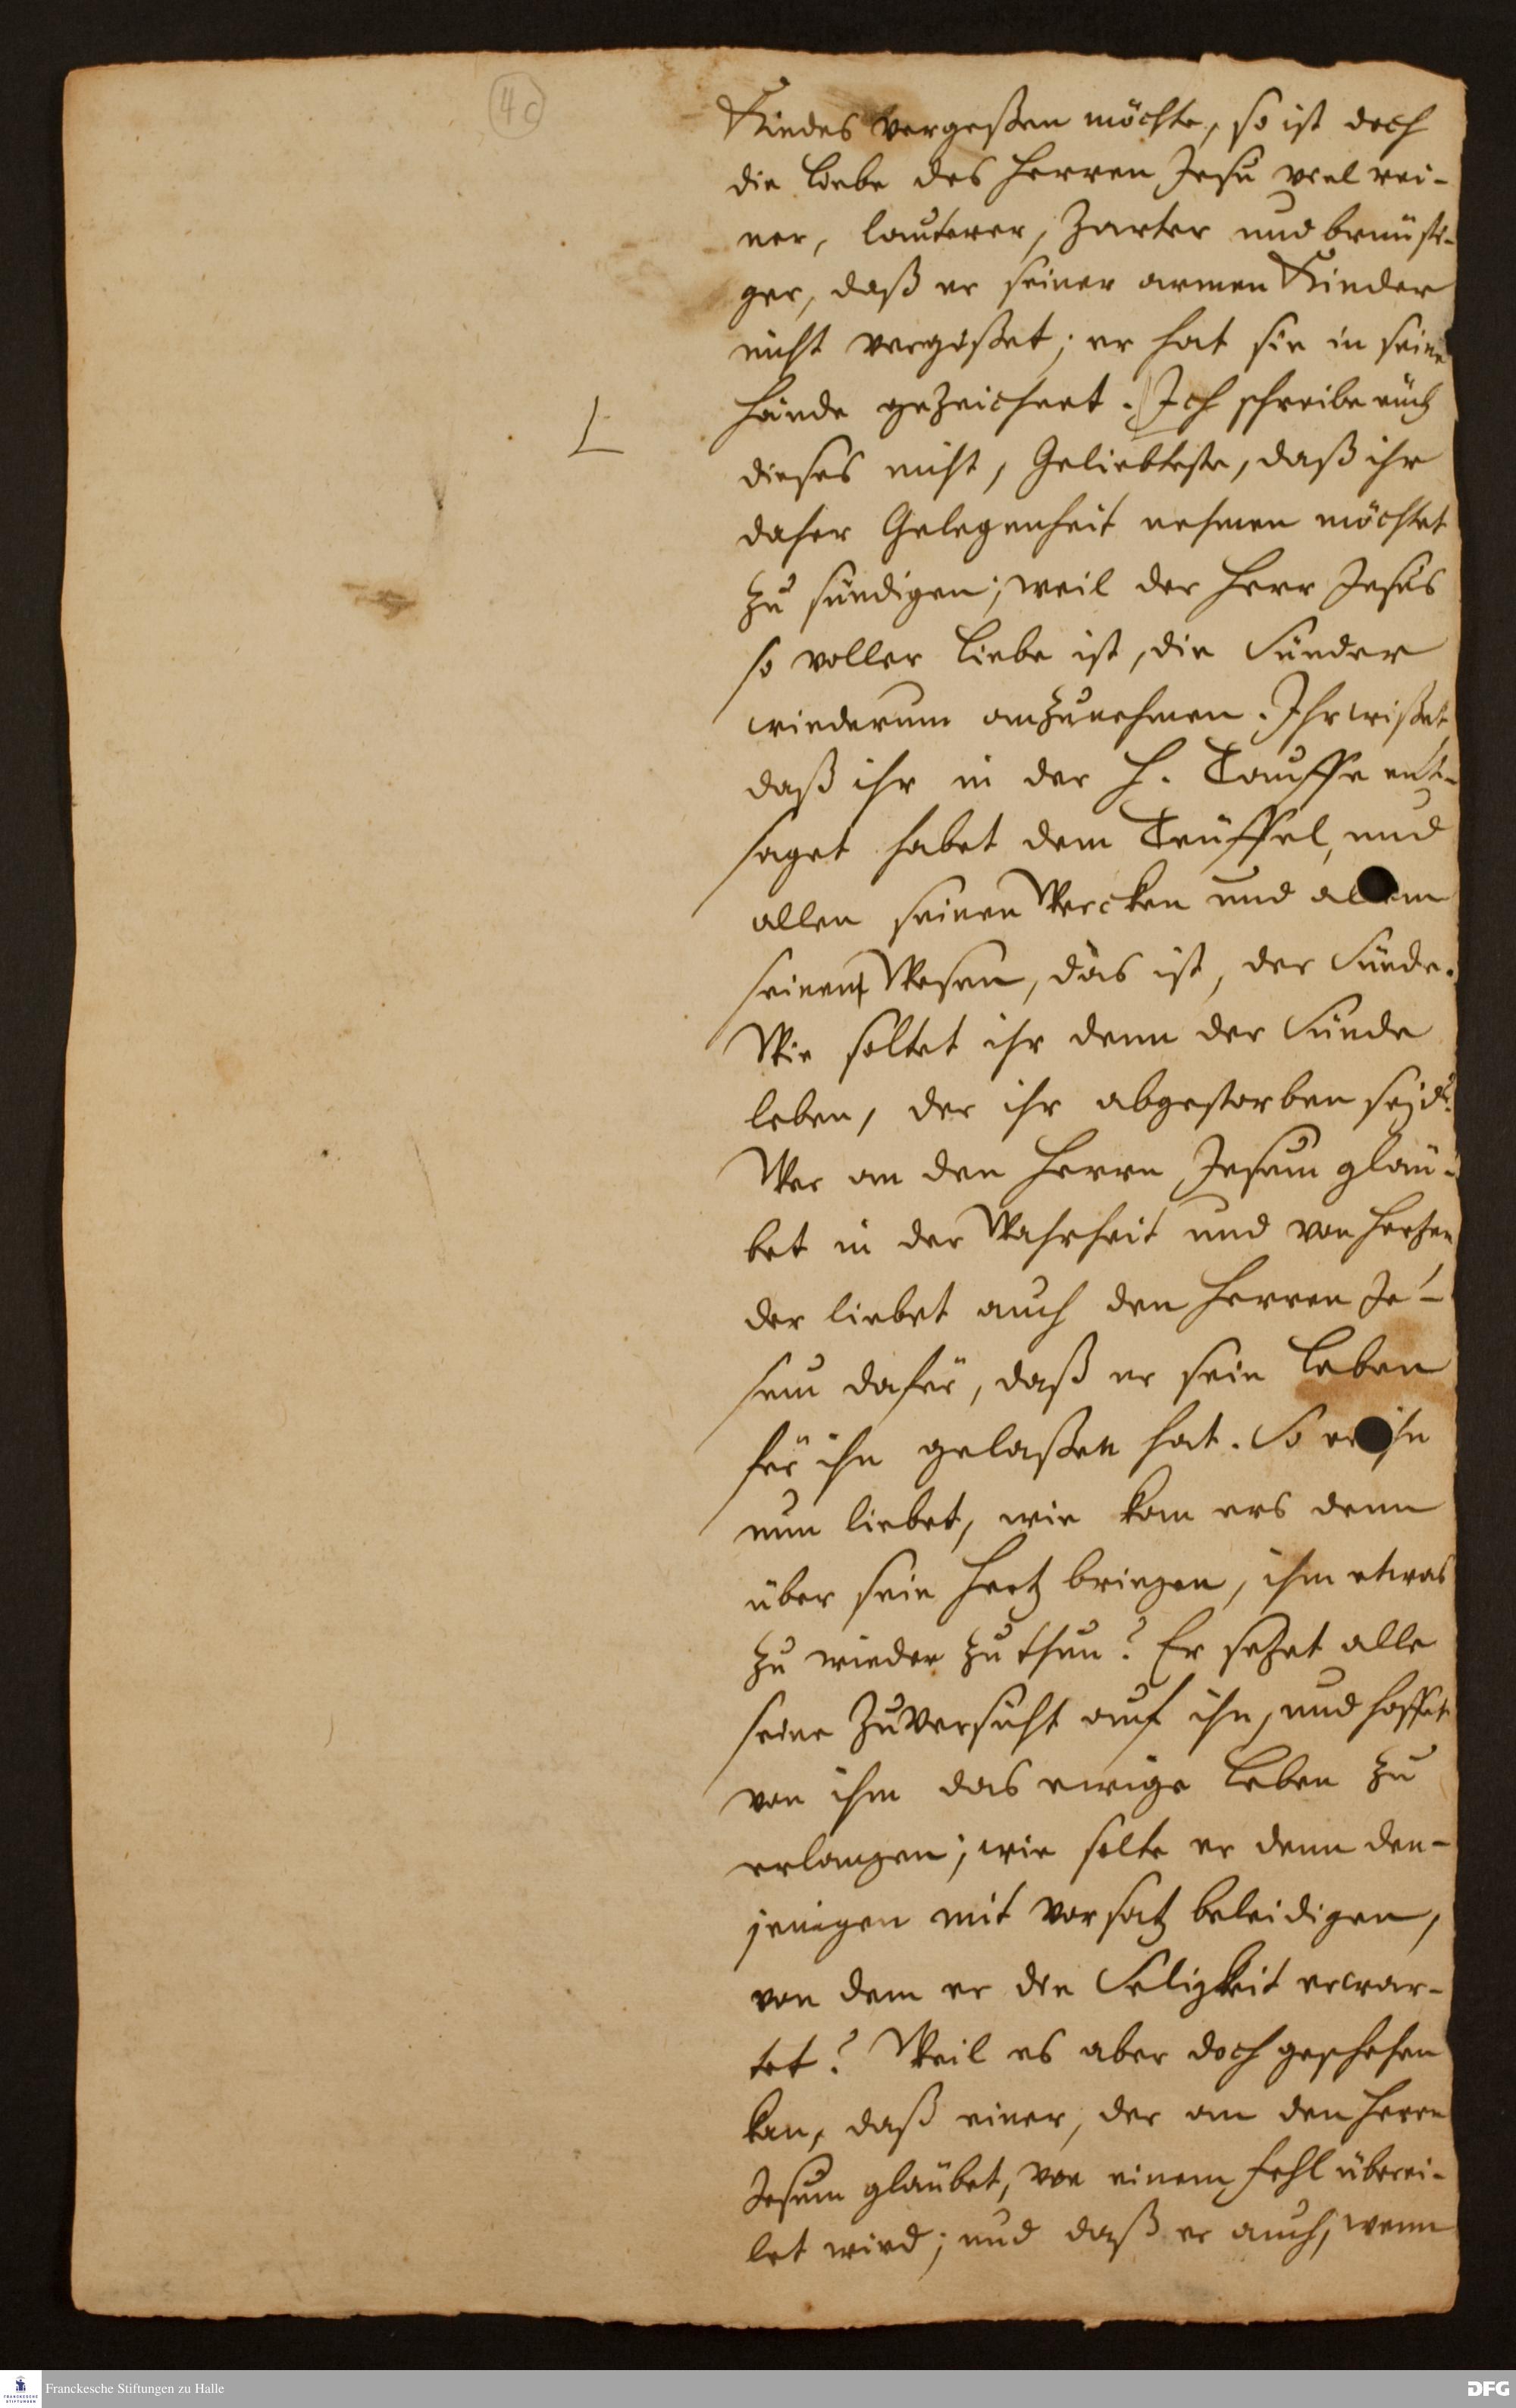 4c
Kindes vergeßen möchte, so ist doch
die Liebe des Herren Jesu viel rei-
ner, lauterer, Zarter und brünsti-
ger, daß er seiner armen Kinder
nicht vergißet; er hat sie in seine
Hände gezeichnet. Ich schreibe euch
dieses nicht, Geliebteste, daß ihr
daher Gelegenheit nehmen möchtet
zu sündigen; weil der Herr Jesus
so voller Liebe ist, die Sünder
wiederum anzunehmen. Ihr wißet,
daß ihr in der H. Tauffe ent-
saget habet dem Teuffel, und
allen seinen Wercken und allem
seinem Wesen, das ist, der Sünde.
Wie soltet ihr denn der Sünde
leben, der ihr abgestorben seid?
Wer an den Herrn Jesum gläu-
bet in der Wahrheit und von Hertzen
der liebet auch den Herren Je-
sum dafür, daß er sein Leben
für ihn gelaßen hat. So er ihn
nun liebet, wie kan ers denn
über sein Hertz bringen, ihm etwas
zu wieder zu thun? Er setzet alle
seine Zuversicht auf ihn, und hoffet
von ihm das ewige Leben zu
erlangen; wie solte er denn den-
jenigen mit Vorsatz beleidigen,
von dem er die Seligkeit erwar-
tet? Weil es aber doch geschehen
kan, daß einer, der an den Herrn
Jesum gläubet, von einem Fehl überei-
let wird; und daß er auch, wenn
Franckesche Stiftungen zu Halle
DFG